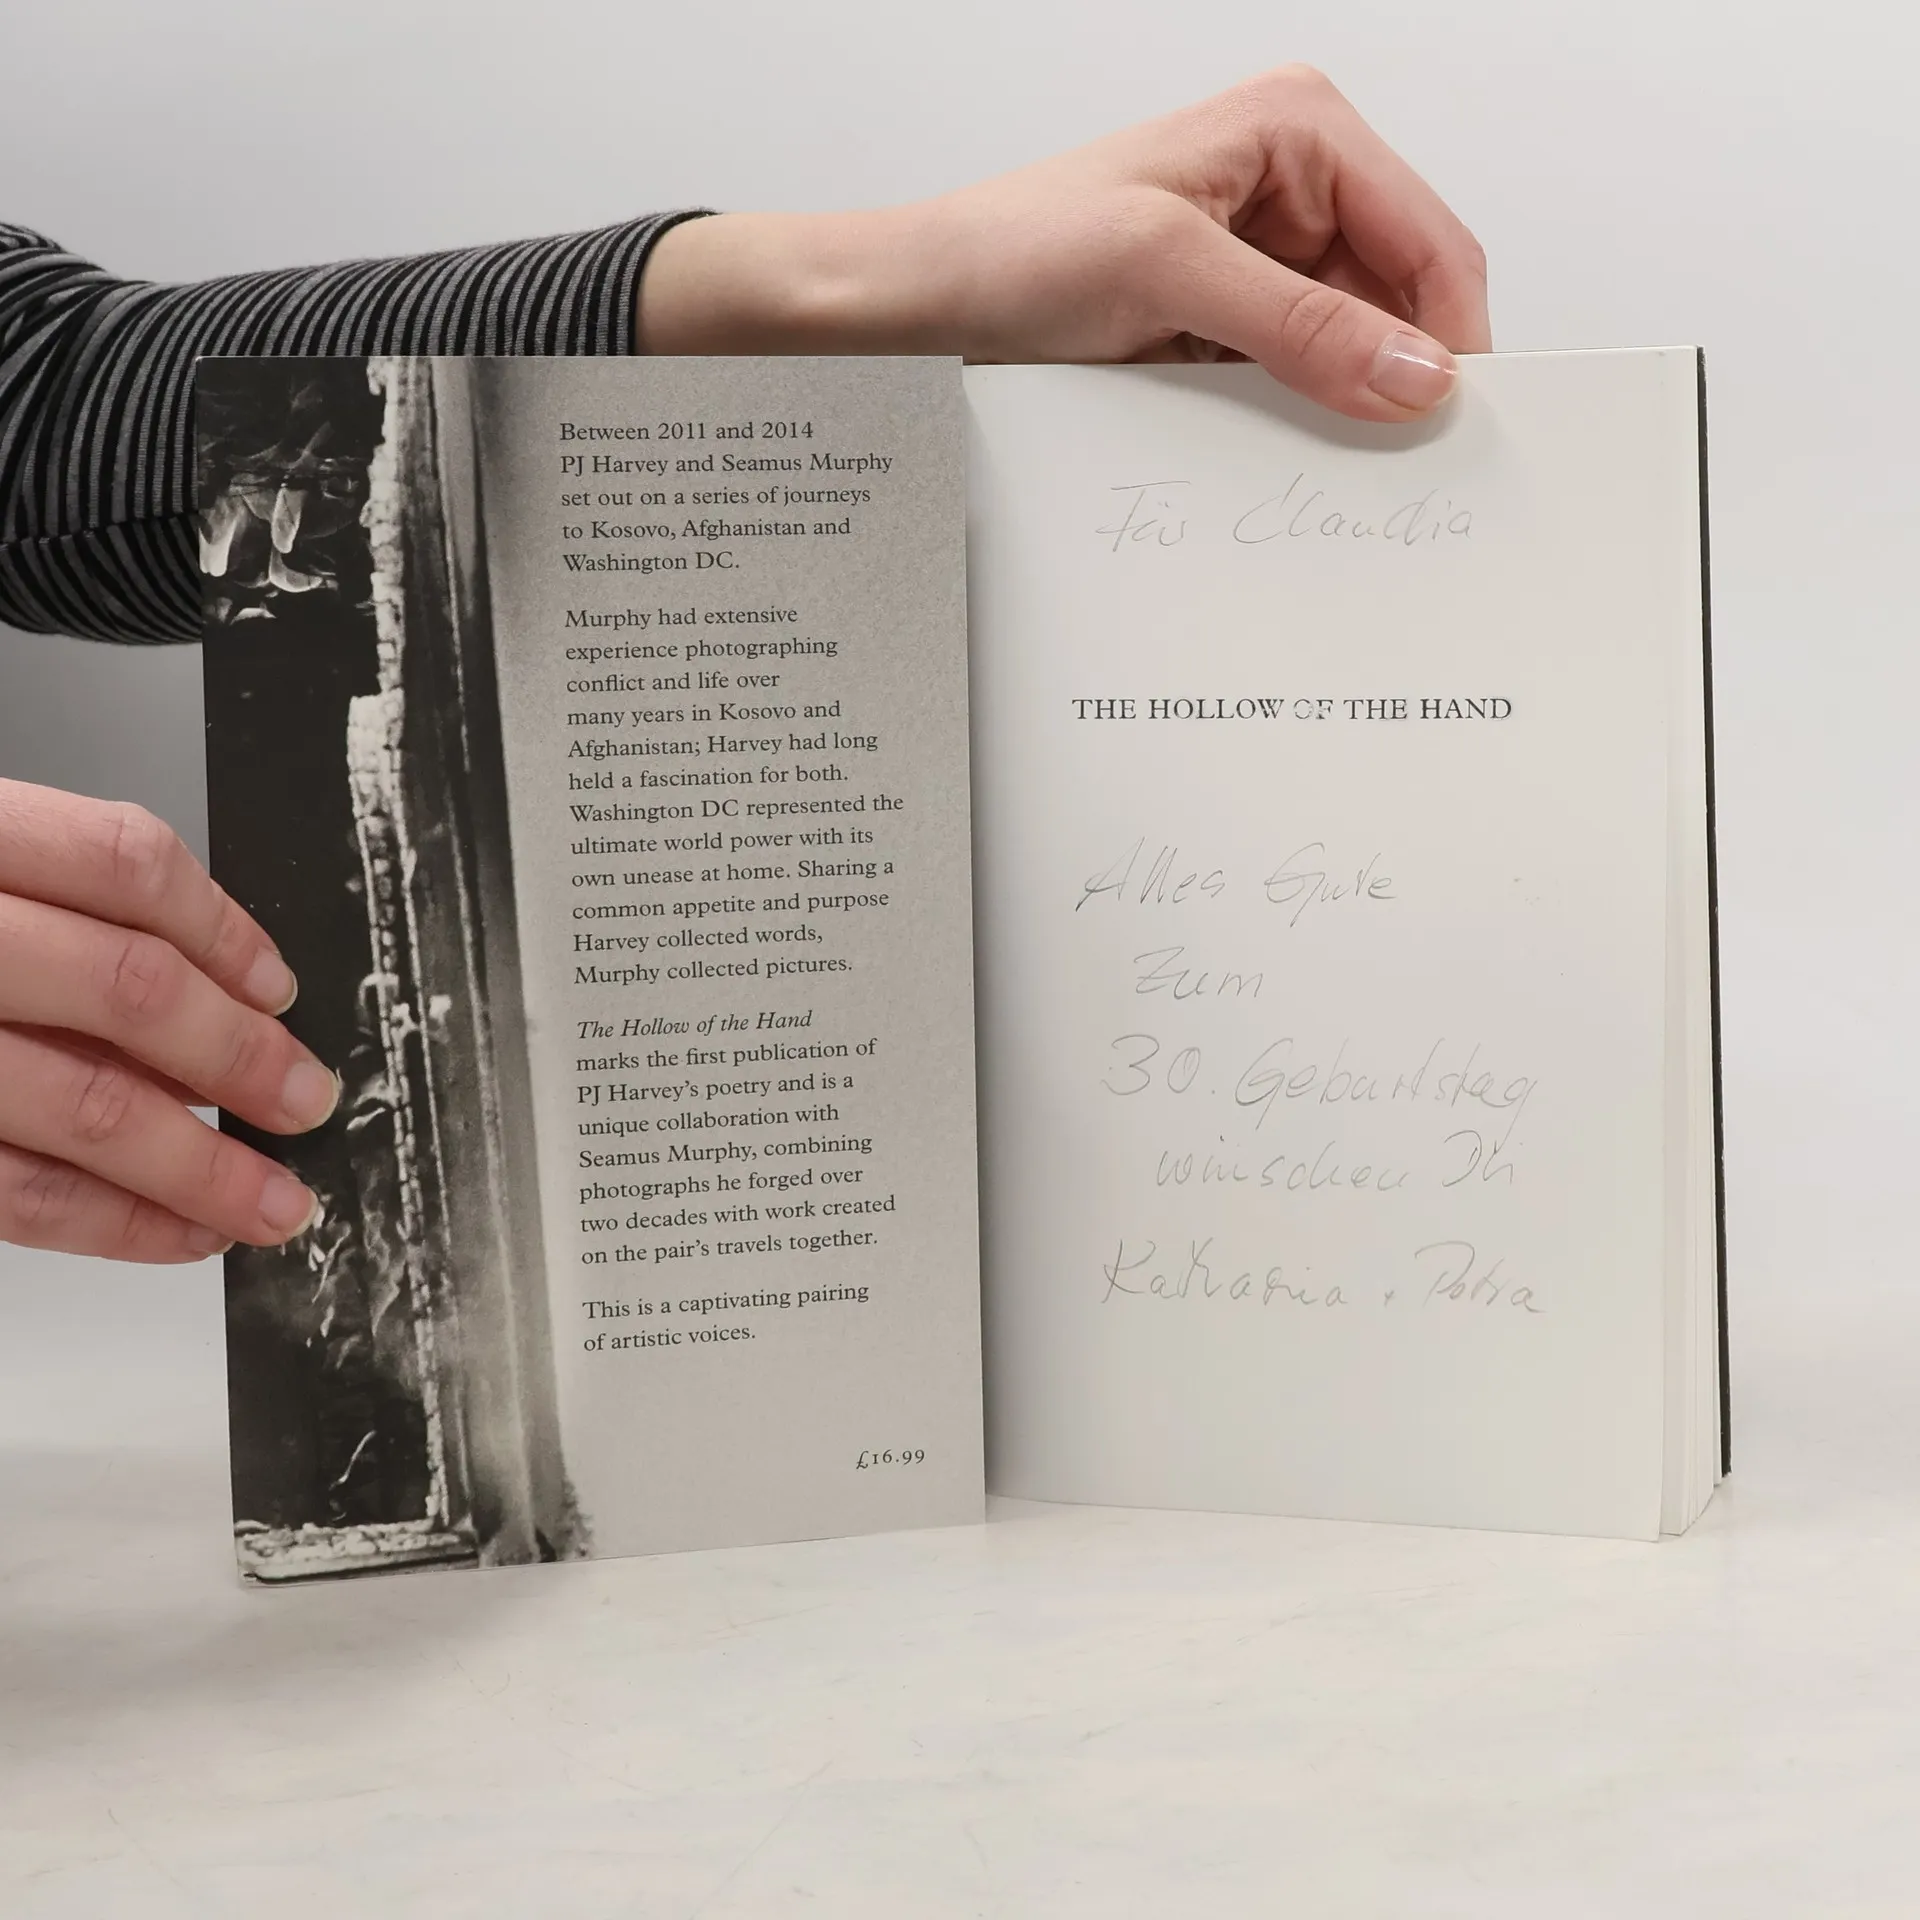 Between 2011 and 2014
PJ Harvey and Seamus Murphy
set out on a series of journeys
to Kosovo, Afghanistan and
Washington DC.
Murphy had extensive
experience photographing
conflict and life over
many years in Kosovo and
Afghanistan; Harvey had long
held a fascination for both.
Washington DC represented the
ultimate world power with its
own unease at home. Sharing a
common appetite and purpose
Harvey collected words,
Murphy collected pictures.
The Hollow of the Hand
marks the first publication of
PJ Harvey's poetry and is a
unique collaboration with
Seamus Murphy, combining
photographs he forged over
two decades with work created
on the pair's travels together.
This is a captivating pairing
of artistic voices.
£16.99
Für Claudia
THE HOLLOW OF THE HAND
Alles Gute
zum
30. Geburtstag
wünschen Dir
Katharina + Petra